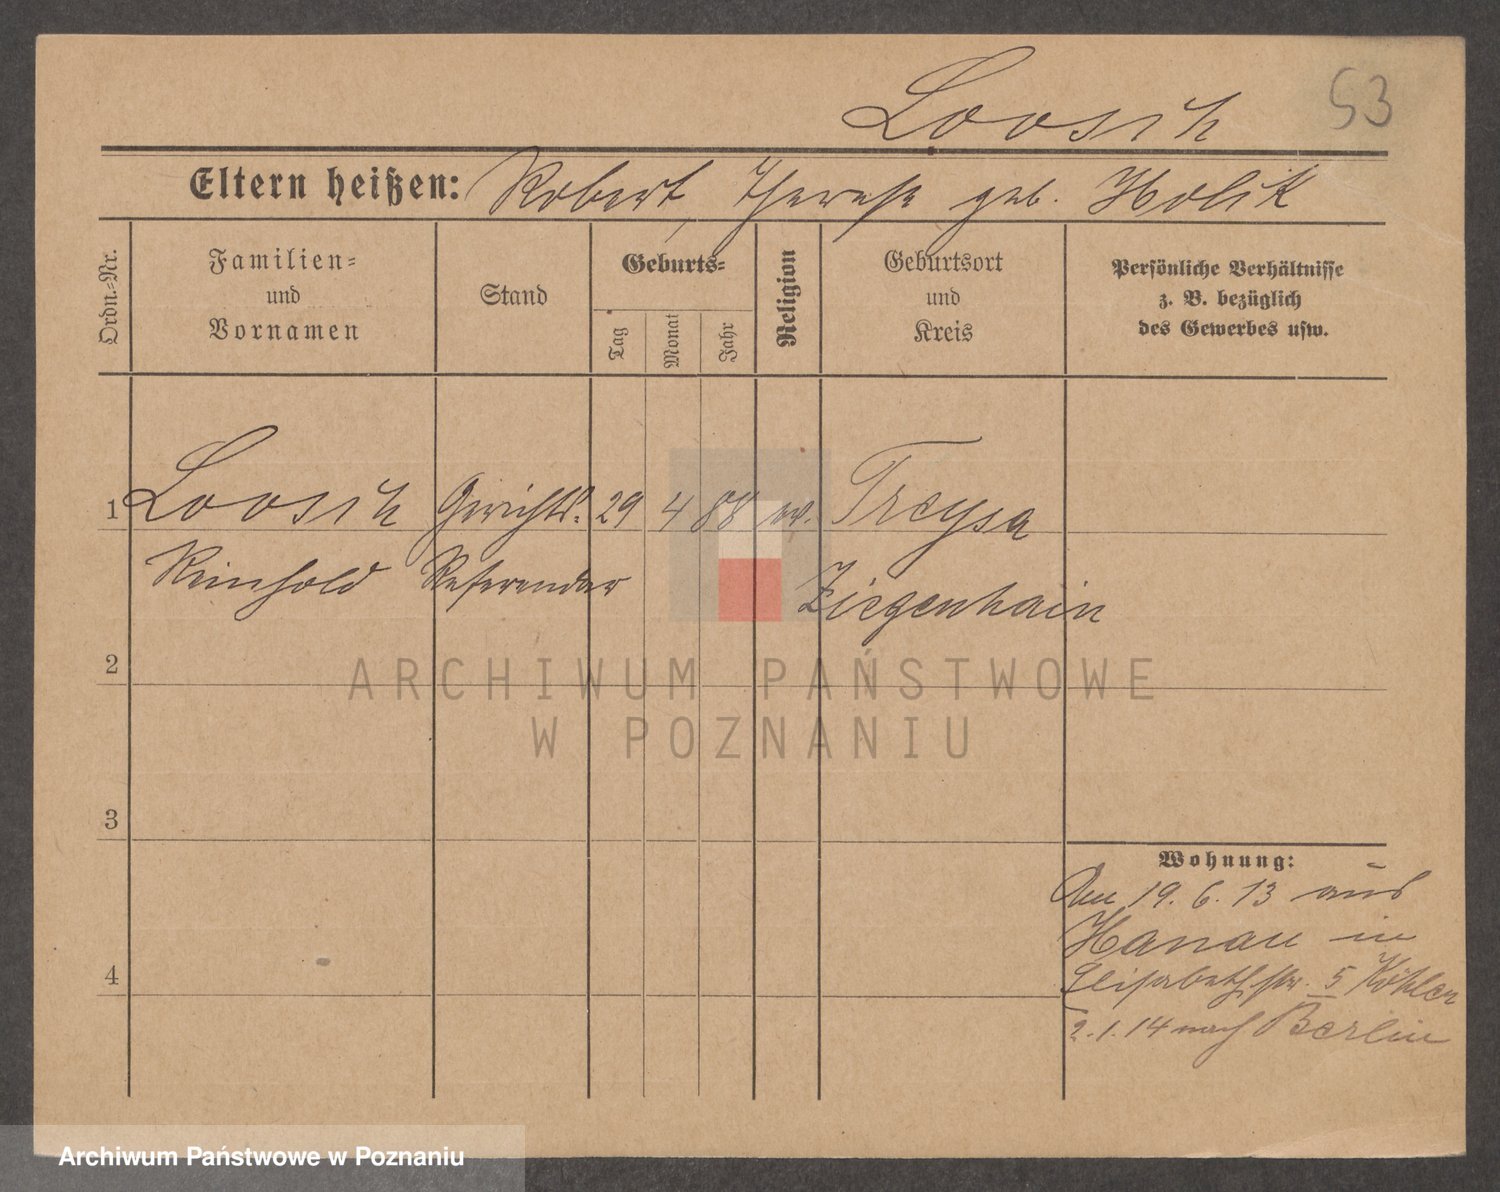 53
Loosch
Eltern heißen: Robert, Therese geb. Holik
Ordn.-Nr.
Familien-
und
Vornamen
Stand
Geburts-
Tag
Monat
Jahr
Religion
Geburtsort
und
Kreis
Persönliche Verhältnisse
z. B. bezüglich
des Gewerbes usw.
1 Loosch Gerichts- 29 4 88 ev. Treysa
Reinhold Referendar Ziegenhain
2
ARCHIWUM PAŃSTWOWE
W POZNANIU
3
Wohnung:
Am 19. 6. 13 aus
Hanau in
4
Elisabethstr. 5 Köhler
2. 1. 14 nach Berlin
Archiwum Państwowe w Poznaniu